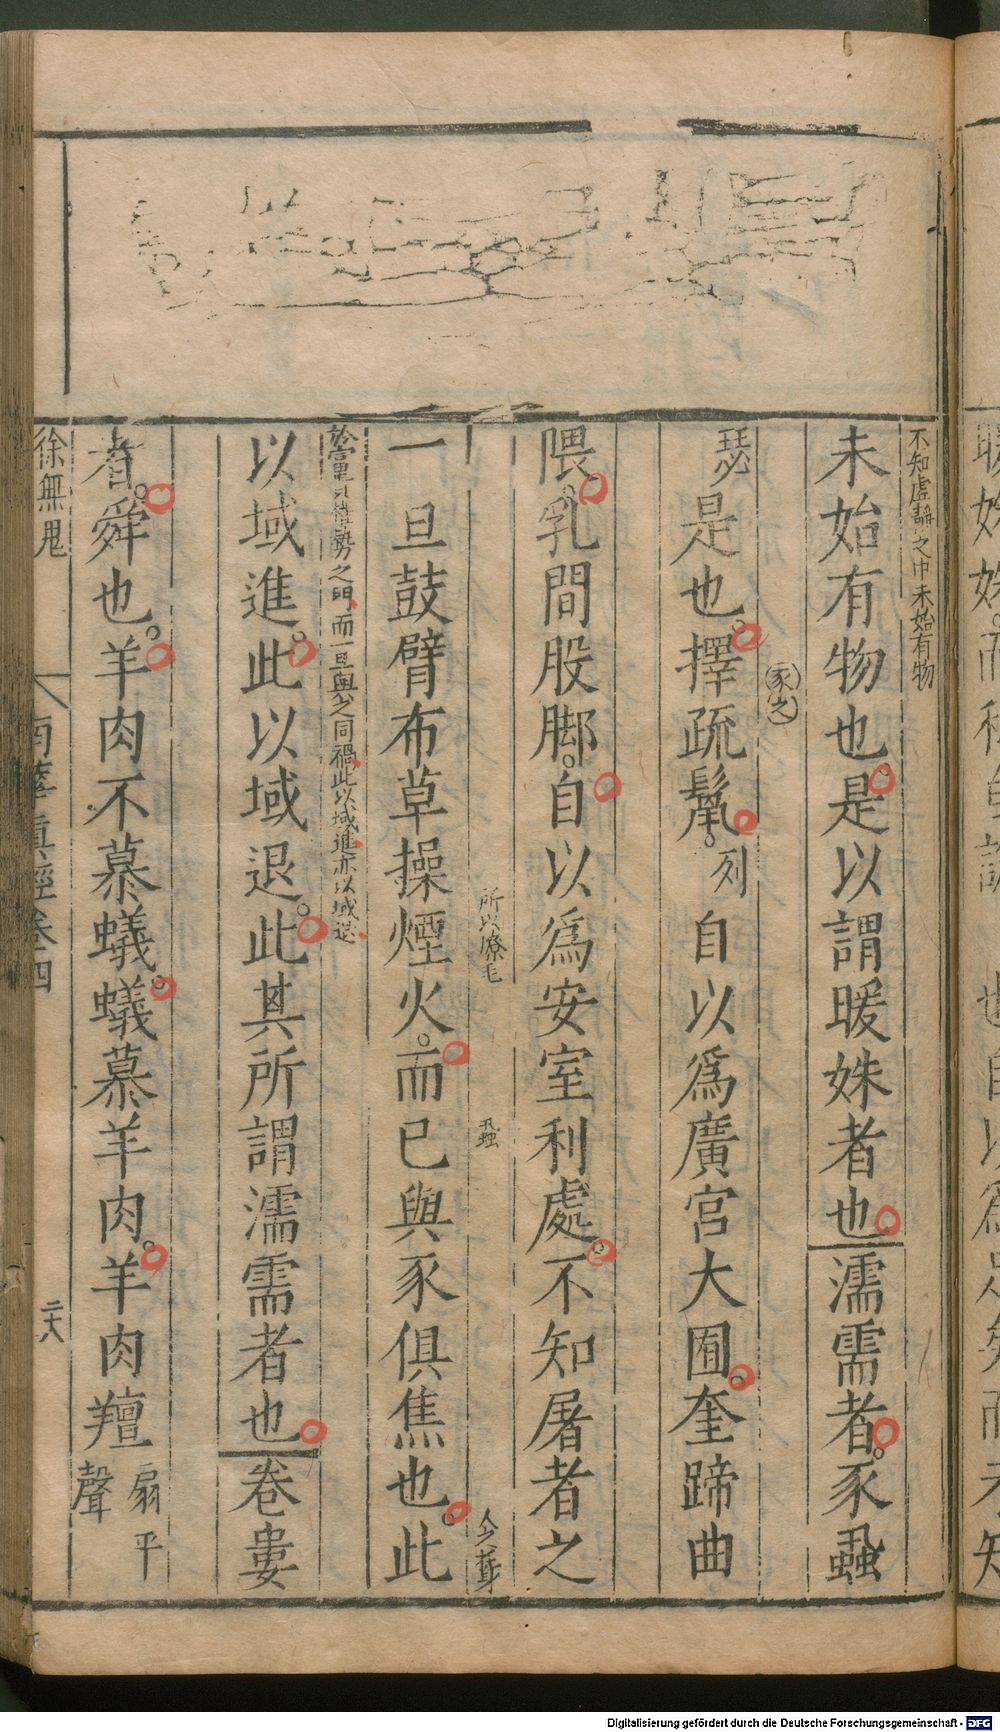 不知虛靜之中未始有物
未始有物也是以謂暖姝者也濡需者豕蝨
豕之
瑟是也擇疏鬣列自以爲廣宮大囿奎蹄曲
隈乳間股脚自以爲安室利處不知屠者之
所以燎毛
蝨
一旦鼓臂布草操煙火而已與豕俱焦也此
之門而一旦與之同禍此以域進亦以域退
以域進此以域退此其所謂濡需者也卷婁
者舜也羊肉不慕蟻蟻慕羊肉羊肉羶扇平聲
徐無鬼
南華真經卷四
二六
Digitalisierung gefördert durch die Deutsche Forschungsgemeinschaft - DFG